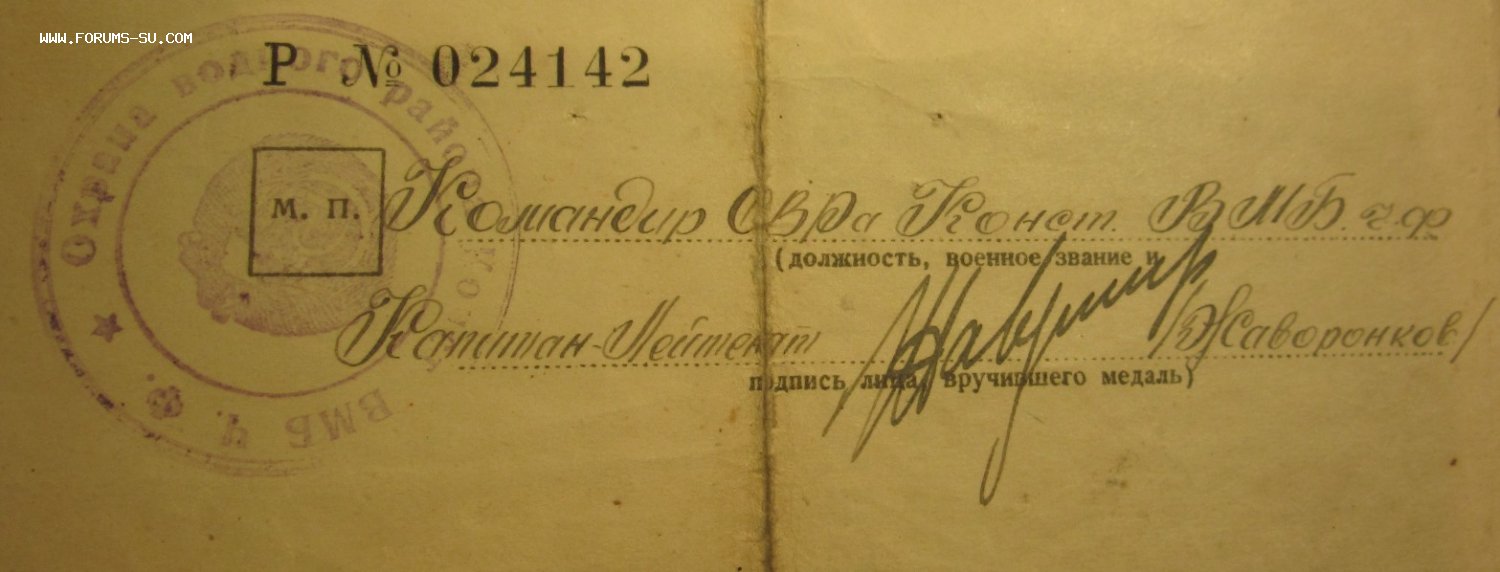 WWW.FORUMS-SU.COM
Р № 024142
Охрана водного райо
ВМБ Ч. Ф.
м. п.
Командир ОВРа Конст. ВМБ. ч.ф
(должность, военное звание и
Капитан-Лейтенат /Жаворонков/
подпись лица, вручившего медаль)